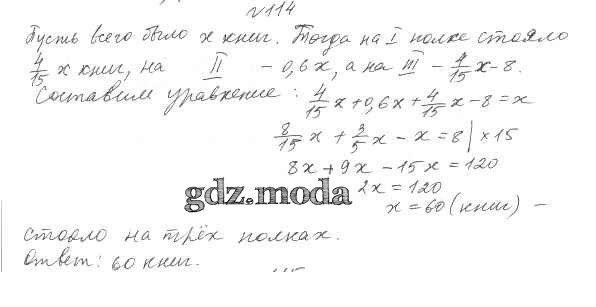 №114
Пусть всего было x книг. Тогда на I полке стояло
4/15 x книг, на II – 0,6x, а на III – 4/15 x – 8.
Составим уравнение: 4/15 x + 0,6x + 4/15 x – 8 = x
8/15 x + 3/5 x – x = 8 | × 15
8x + 9x – 15x = 120
gdz.moda
2x = 120
x = 60 (книг) –
стояло на трёх полках.
Ответ: 60 книг.